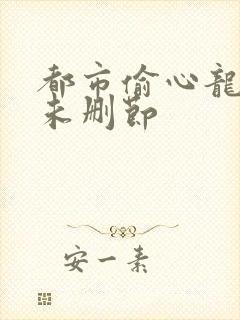 都市偷心龍
未删節
安一素